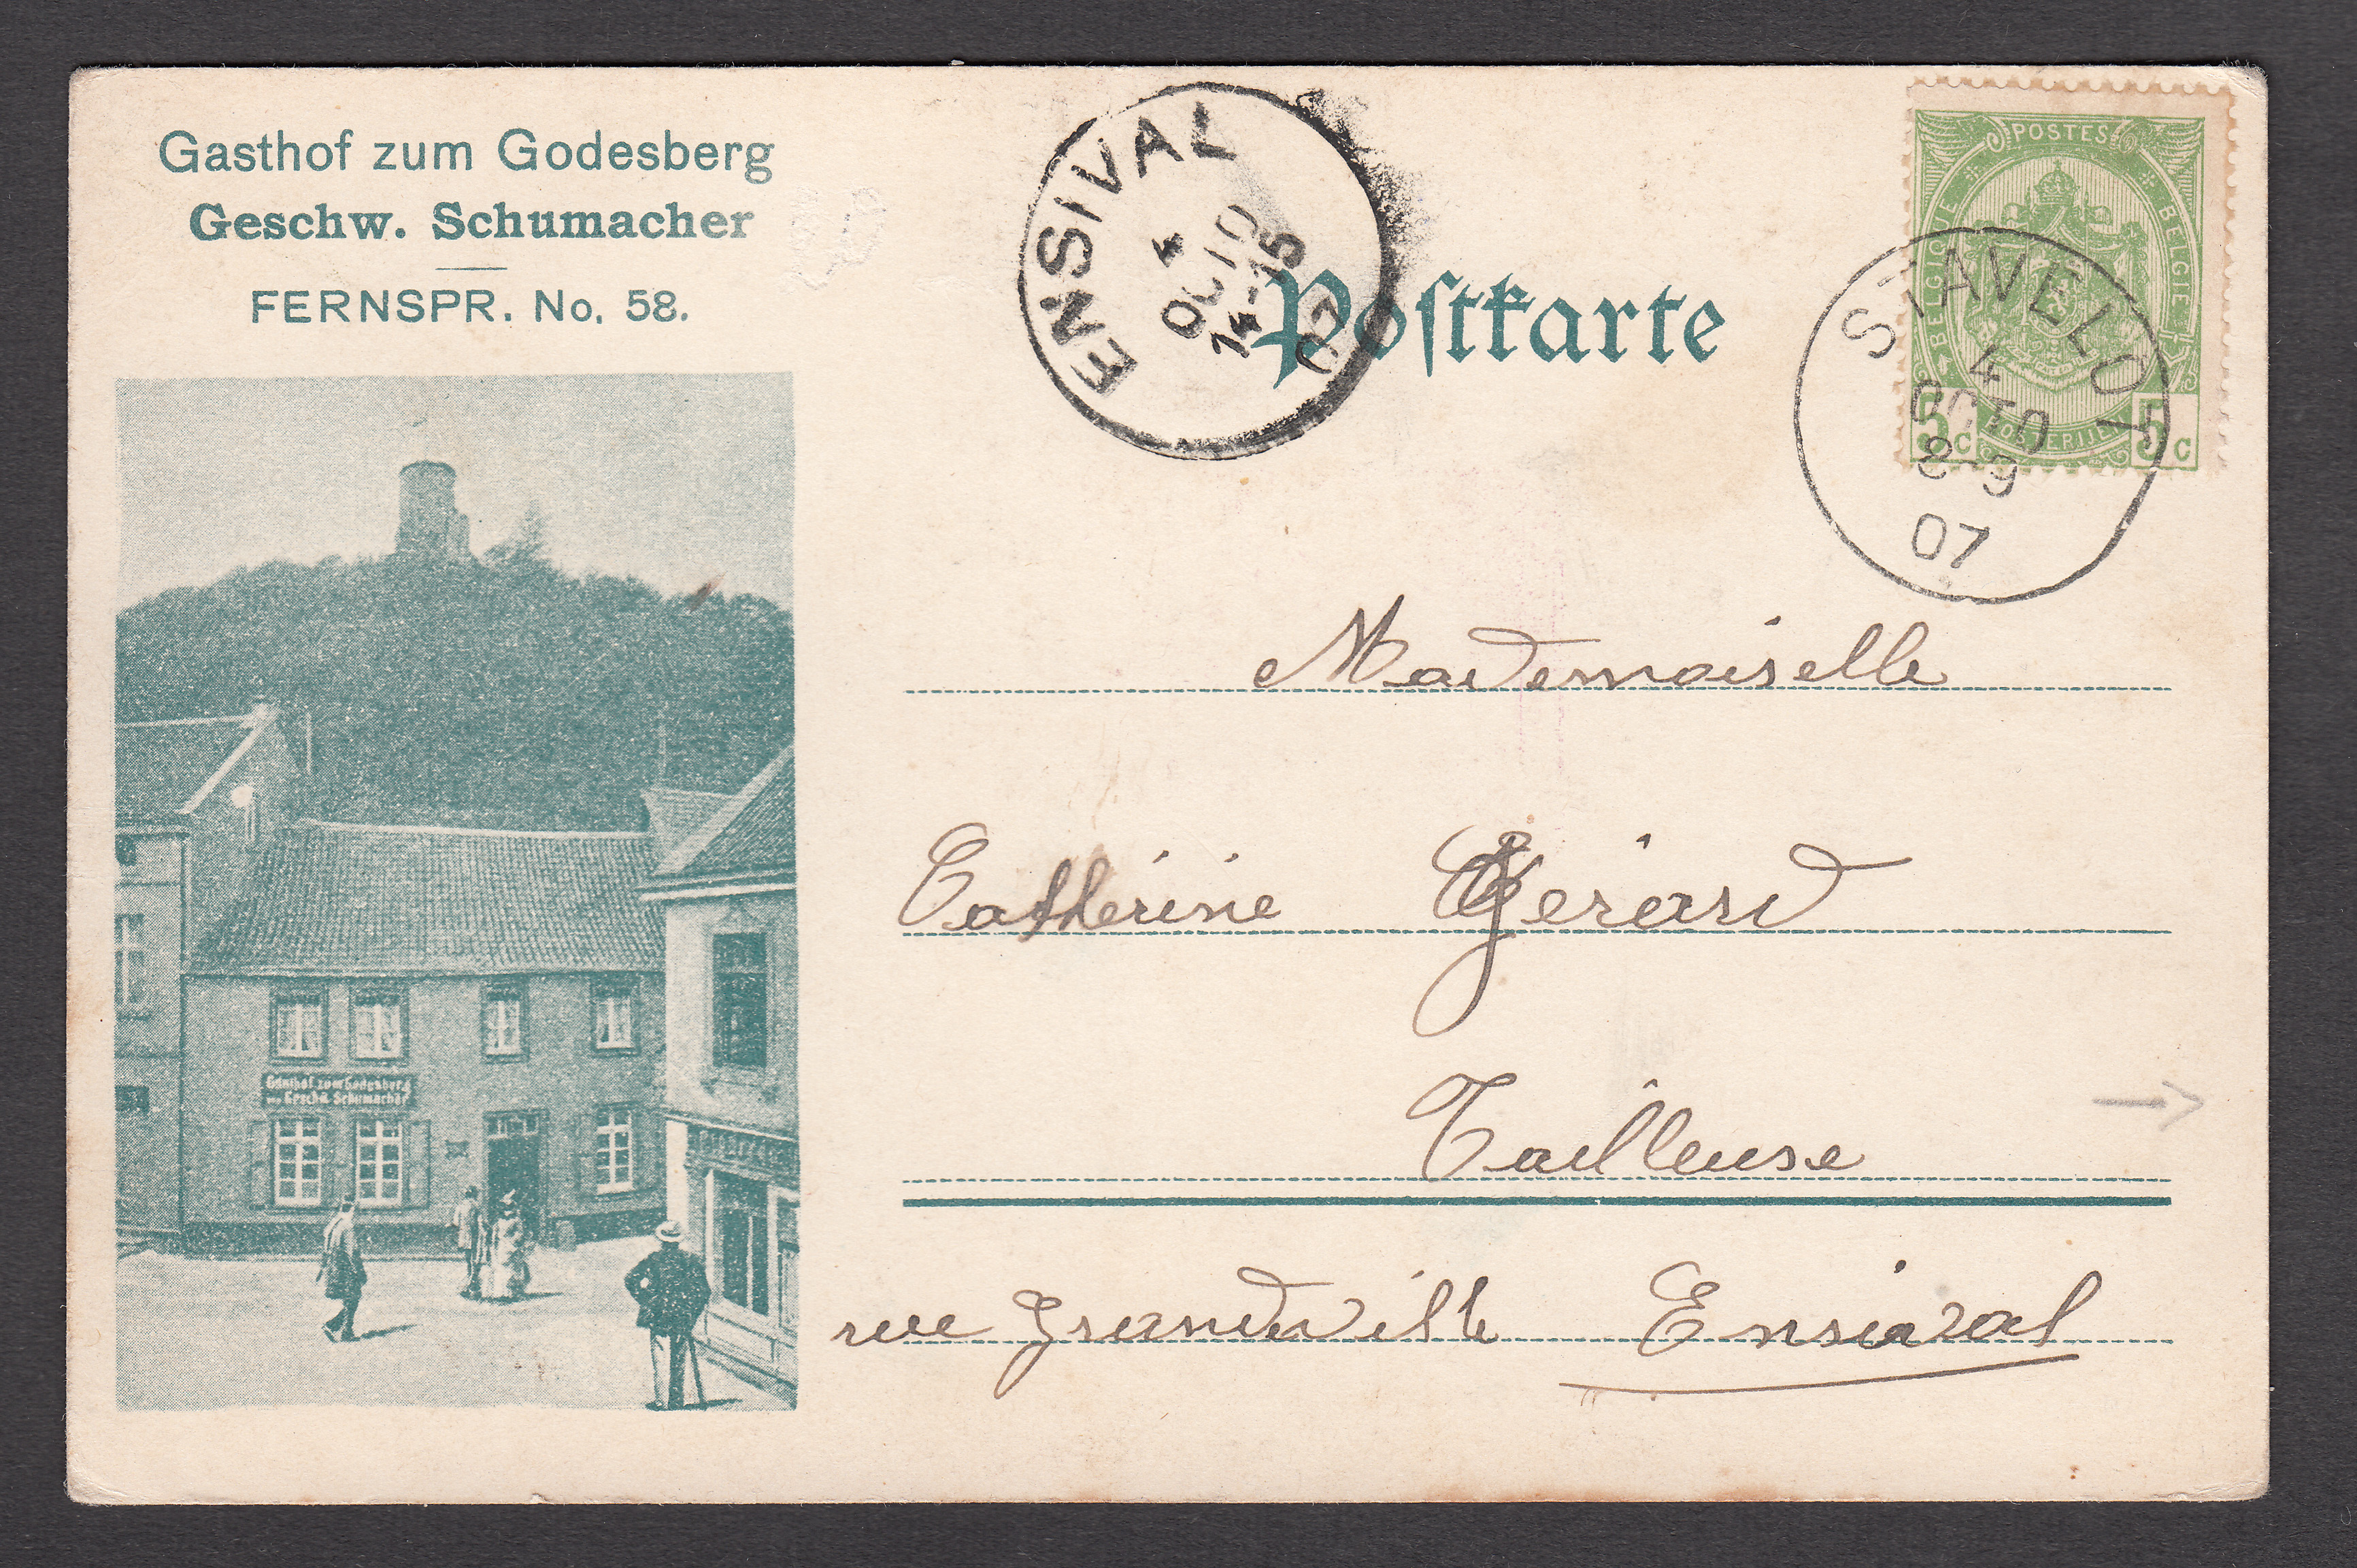 Gasthof zum Godesberg
Geschw. Schumacher
FERNSPR. No. 58.
Gasthof zum Godesberg
Geschw. Schumacher
ENSIVAL
4
OCTO
14-15
07
Postkarte
POSTES
BELGIQUE
BELGIE
POSTERIJEN
5 C
5 C
STAVELOT
4
OCTO
8-9
07
Mademoiselle
Catherine Gerard
Tailleuse
rue Grandville Ensival